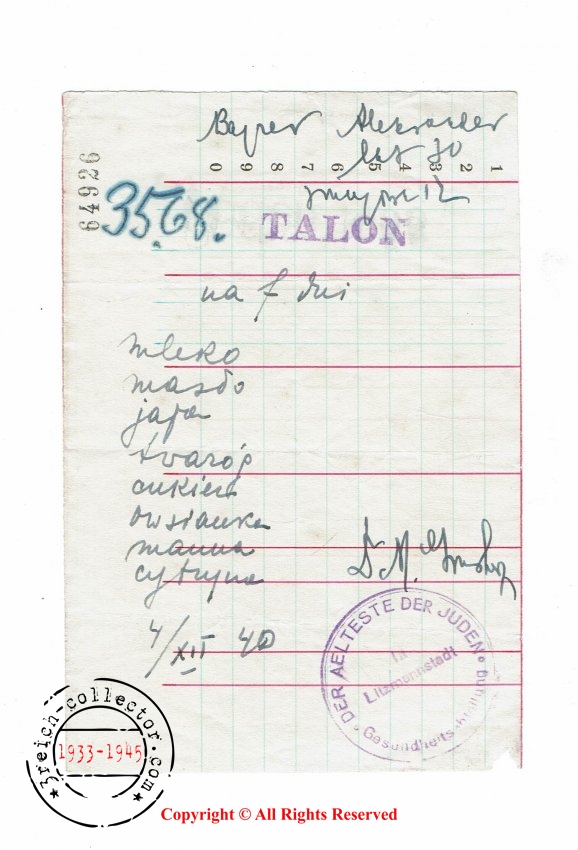 Alexander
lat 70
64926
0 9 8 7 6 5 4 3 2 1
3568.
TALON
na 7 dni
mleko
masło
jaja
twaróg
cukier
owsianka
manna
cytryna
Dr M.
4/XII 40
DER AELTESTE DER JUDEN
in
Litzmannstadt
Gesundheits
3reich-collector.com
1933-1945
Copyright © All Rights Reserved